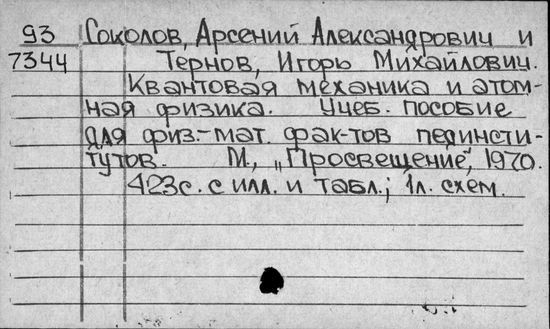 93 Соколов, Арсений Александрович и
7344 Тернов, Игорь Михайлович.
Квантовая механика и атом-
ная физика. Учеб. пособие
для физ.-мат. фак-тов пединсти-
тутов. М., „Просвещение", 1970.
423с. с илл. и табл.; 1л. схем.